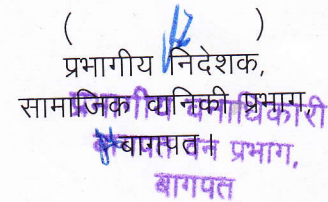 ( )
प्रभागीय निदेशक,
सामाजिक वानिकी प्रभाग,
बागपत।
प्रभागीय वनाधिकारी
बागपत वन प्रभाग,
बागपत